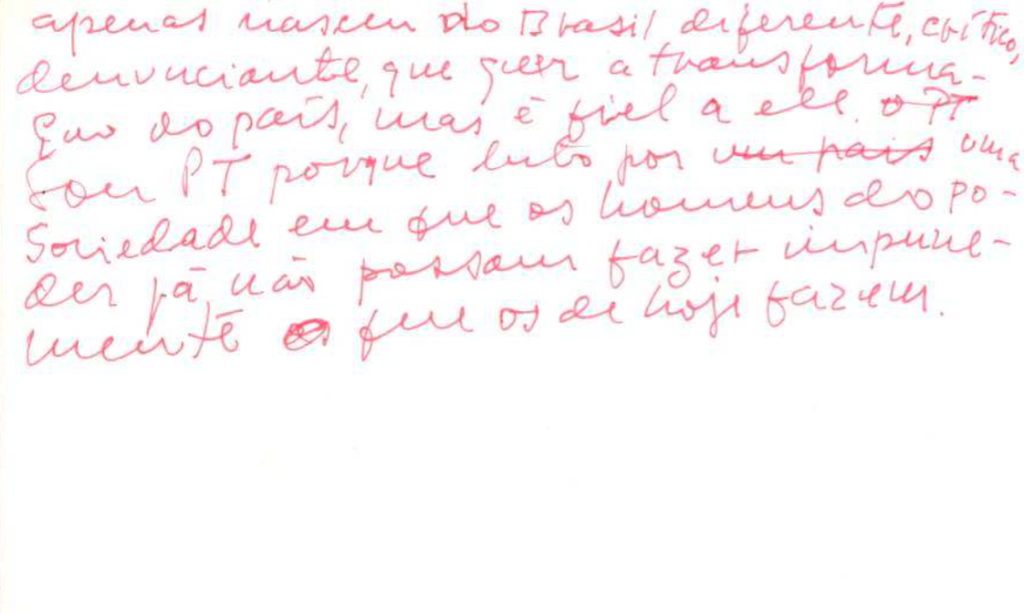 apenas nascem do Brasil diferente, crítico,
denunciante, que quer a transforma-
ção do país, mas é fiel a ele. o PT
Sou PT porque luto por um país uma
Sociedade em que os homens do po-
der já não possam fazer impune-
mente o que os de hoje fazem.